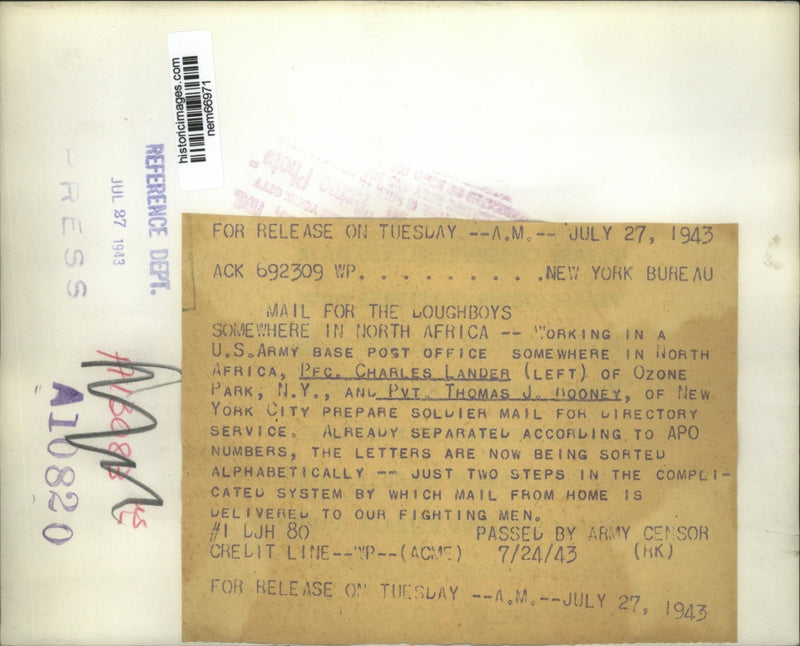 historicimages.com
nem66971
REFERENCE DEPT.
JUL 27 1943
PRESS
A10820
FOR RELEASE ON TUESDAY --A.M.-- JULY 27, 1943
ACK 692309 WP. . . . . . . . . .NEW YORK BUREAU
MAIL FOR THE DOUGHBOYS
SOMEWHERE IN NORTH AFRICA -- WORKING IN A
U.S.ARMY BASE POST OFFICE SOMEWHERE IN NORTH
AFRICA, PFC. CHARLES LANDER (LEFT) OF OZONE
PARK, N.Y., AND PVT. THOMAS J. ROONEY, OF NEW
YORK CITY PREPARE SOLDIER MAIL FOR DIRECTORY
SERVICE. ALREADY SEPARATED ACCORDING TO APO
NUMBERS, THE LETTERS ARE NOW BEING SORTED
ALPHABETICALLY -- JUST TWO STEPS IN THE COMPLI-
CATED SYSTEM BY WHICH MAIL FROM HOME IS
DELIVERED TO OUR FIGHTING MEN.
#1 DJH 80 PASSED BY ARMY CENSOR
CREDIT LINE--WP--(ACME) 7/24/43 (RK)
FOR RELEASE ON TUESDAY --A.M.--JULY 27, 1943